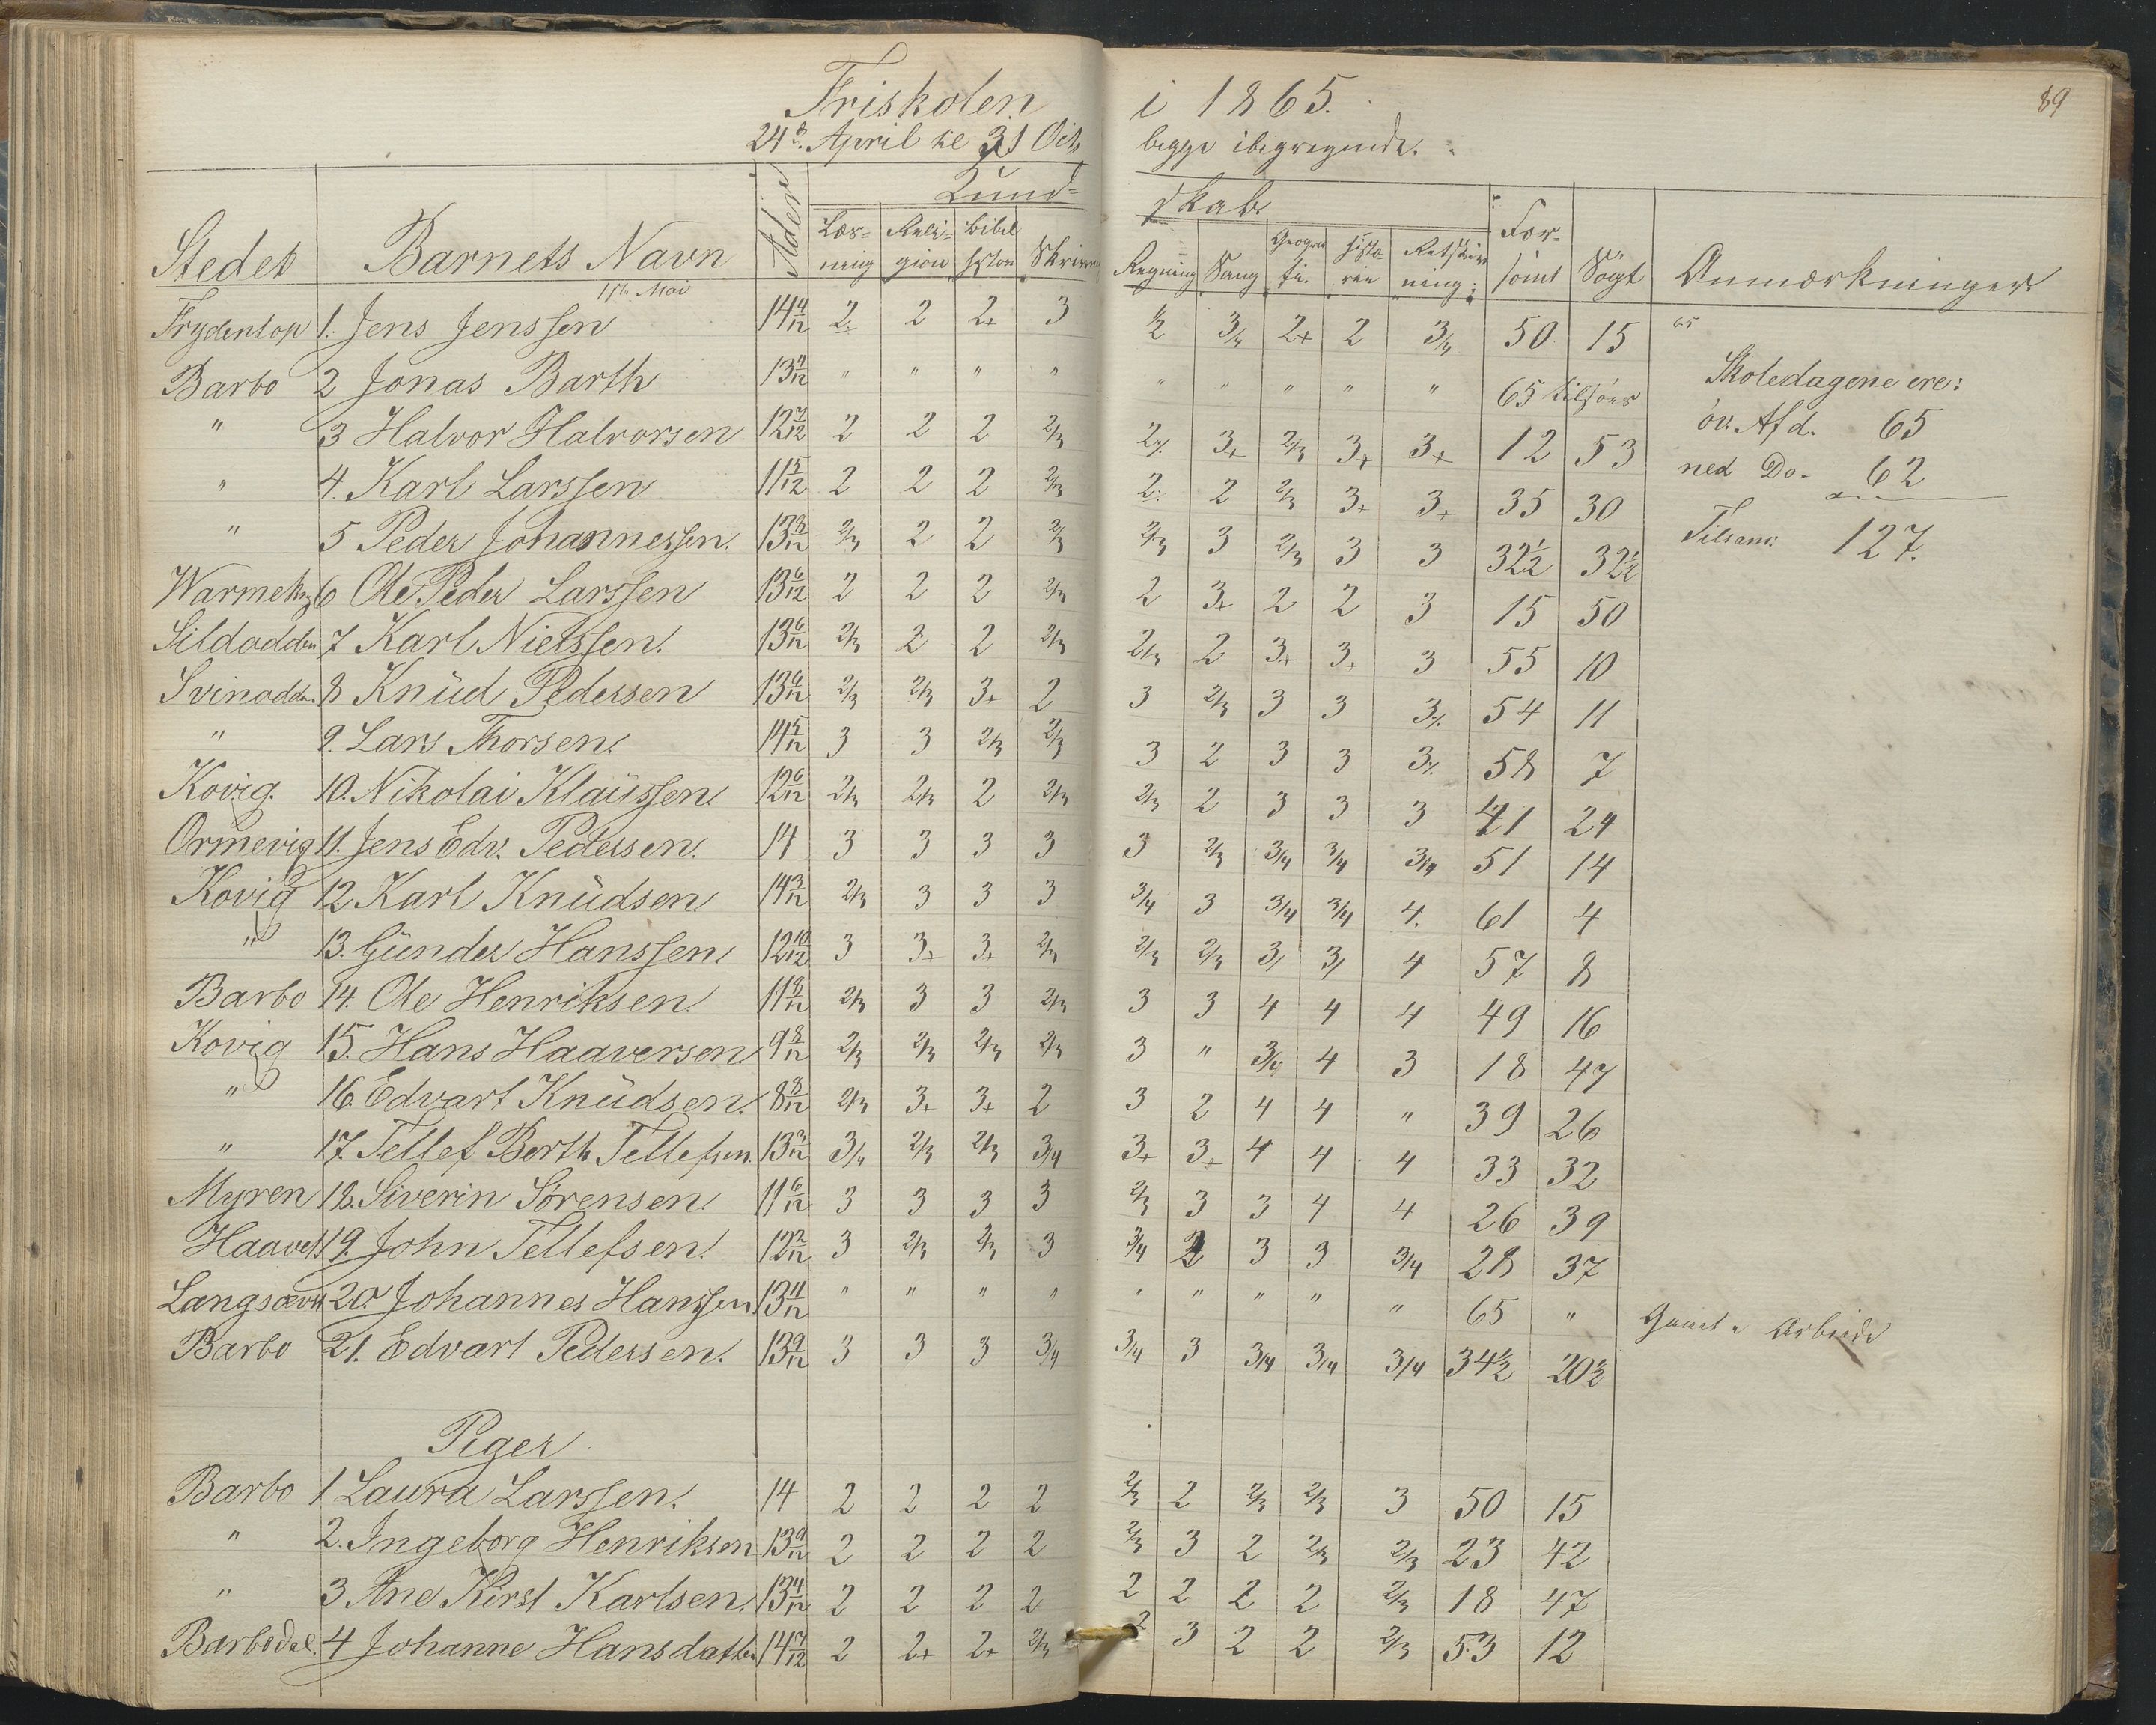 Friskolen i 1865.
89
24de April til 31 Oct. begge iberegnede.
Kund- skab
Stedet Barnets Navn Alder Læsning Religion Bibelhistorie Skrivning Regning Sang Geografie Historien Retskrivning Forsömt Sögt Anmærkninger
11te Mai
Frydentop 1. Jens Jenssen 14 4/12 2. 2 2+ 3 ½ 3/4 2+ 2 3/4 50 15 65
Barbo 2 Jonas Barth 13 4/12 " " " " " " " " " 65 tilsöes
" 3 Halvor Halvorsen 12 7/12 2 2 2 2/3 2% 3+ 2/3 3+ 3+ 12 53
" 4. Karl Larssen 11 5/12 2 2 2 2/3 2. 2 2/3 3+ 3+ 35 30
" 5 Peder Johannessen. 13 8/12 2/3 2 2 2/3 2/3 3 2/3 3 3 32½ 32½
6 Ole Peder Larssen 13 6/12 2 2 2 2/3 2 3+ 2 2 3 15 50
Sildodden 7 Karl Nielssen. 13 6/12 2/3 2 2 2/3 2/3 2 3+ 3+ 3 55 10
Svinodden. 8 Knüd Pedersen 13 6/12 2/3 2/3 3+ 2 3 2/3 3 3 3% 54 11
" 9. Lars Thorsen. 14 5/12 3 3 2/3 2/3 3 2 3 3 3% 58 7
Kovig. 10. Nikolai Klaüssen. 12 6/12 2/3 2/3 2 2/3 2/3 2 3 3 3 41 24
Ormevig 11. Jens Edv. Pedersen. 14 3 3 3 3 3 2/3 3/4 3/4 3/4 51 14
Kovig 12 Karl Knüdsen 14 3/12 2/3 3 3 3 3/4 3 3/4 3/4 4. 61 4
" 13. Günder Hanssen. 12 10/12 3 3+ 3+ 2/3 2/3 2/3 3/ 3/ 4 57 8
Barbo 14. Ole Henriksen. 11 8/12 2/3 3 3 2/3 3 3 4 4 4 49 16
Kovig 15. Hans Haaversen 9 8/12 2/3 2/3 2/3 2/3 3 " 3/4 4 3 18 47
" 16. Edvart Knüdsen. 8 8/12 2/3 3+ 3+ 2 3 2 4 4 " 39 26
" 17. Tellef Berth Tellefsen. 13 3/12 3/4 2/3 2/3 3/4 3+ 3+ 4 4 4 33 32
Myren 18. Siverin Sörensen. 11 6/12 3 3 3 3 2/3 3 3 4 4 26 39
Haavet 19. John Tellefsen. 12 2/12 3 2/3 2/3 3 3/4 2 3 3 3/4 28 37
20. Johannes Hanssen 13 11/12 " " " " " " " " " 65 "
Barbo 21. Edvart Pedersen. 13 9/12 3 3 3 3/4 3/4 3 3/4 3/4 3/4 34½ 20½
Skoledagene ere:
öv. Afd. 65
ned Do. 62
Tilsam: 127.
Piger
Barbo 1 Laura Larssen. 14 2 2 2 2 2/3 2 2/3 2/3 3 50 15
" 2. Ingeborg Henriksen 13 9/12 2 2 2 2 2/3 3 2 2/3 2/3 23 42
" 3 Ane Kirst Karlsen. 13 4/12 2 2 2 2 2 2 2 2 2/3 18 47
Barbodal. 4 Johanne Hansdatter 14 7/12 2 2+ 2+ 2/3 2 3 2 2 2/3 53 12